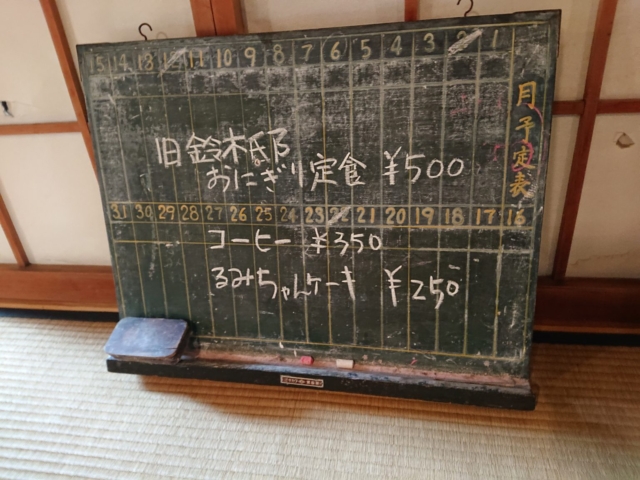 月予定表
15 14 13 12 11 10 9 8 7 6 5 4 3 2 1
旧鈴木邸
おにぎり定食 ¥500
31 30 29 28 27 26 25 24 23 22 21 20 19 18 17 16
コーヒー ¥350
るみちゃんケーキ ¥250